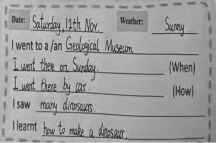 Date: Saturday, 11th Nov. Weather: Sunny
I went to a /an Geological Museum
I went there on Sunday. (When)
I went there by car. (How)
I saw many dinosaurs.
I learnt how to make a dinosaur.